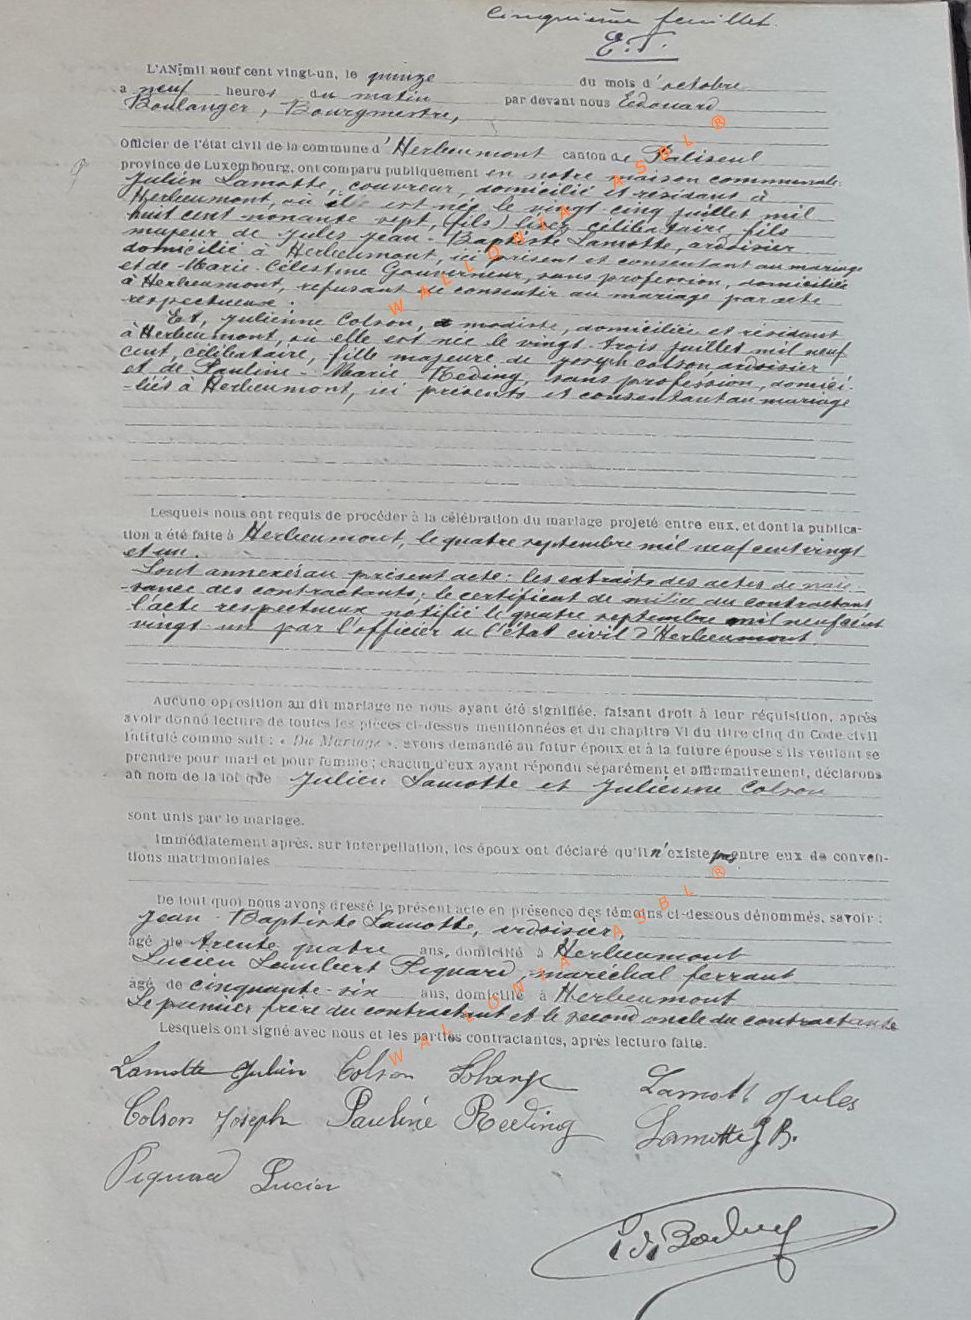 Cinquième feuillet.
E.T.
L'AN mil neuf cent vingt-un, le quinze du mois d'octobre
a neuf heures du matin par devant nous Edouard
Boulanger, Bourgmestre,
Officier de l'état civil de la commune d'Herbeumont canton de Paliseul
province de Luxembourg, ont comparu publiquement en notre maison communale:
Julien Lamotte, couvreur, domicilié et résidant à
Herbeumont, où il est né le vingt cinq juillet mil
huit cent nonante sept, (fils) lisez célibataire, fils
majeur de Jules Jean-Baptiste Lamotte, ardoisier
domicilié à Herbeumont, ici présent et consentant au mariage
et de Marie-Célestine Gouverneur, sans profession, domiciliée
à Herbeumont, refusant de consentir au mariage par acte
respectueux.
Et, Julienne Colson, modiste, domiciliée et résidant
à Herbeumont, où elle est née le vingt-trois juillet mil neuf
cent, célibataire, fille majeure de Joseph Colson, ardoisier
et de Pauline-Marie Reding, sans profession, domici-
-liés à Herbeumont, ici présents et consentant au mariage
Lesquels nous ont requis de procéder à la célébration du mariage projeté entre eux, et dont la publica-
tion a été faite à Herbeumont, le quatre septembre mil neuf cent vingt
et un.
Sont annexés au présent acte: les extraits des actes de nais-
-sance des contractants; le certificat de milice du contractant
l'acte respectueux notifié le quatre septembre mil neuf cent
vingt-un par l'officier de l'état civil d'Herbeumont
Aucune opposition au dit mariage ne nous ayant été signifiée, faisant droit à leur réquisition, après
avoir donné lecture de toutes les pièces ci-dessus mentionnées et du chapitre VI du titre cinq du Code civil
intitulé comme suit : « Du Mariage », avons demandé au futur époux et à la future épouse s'ils veulent se
prendre pour mari et pour femme ; chacun d'eux ayant répondu séparément et affirmativement, déclarons
au nom de la loi que Julien Lamotte et Julienne Colson
sont unis par le mariage.
Immédiatement après, sur interpellation, les époux ont déclaré qu'il n'existe pas entre eux de conven-
tions matrimoniales
De tout quoi nous avons dressé le présent acte en présence des témoins ci-dessous dénommés, savoir :
Jean-Baptiste Lamotte, ardoisier,
âgé de trente quatre ans, domicilié à Herbeumont
Lucien Lambert Piquard, maréchal ferrant
âgé de cinquante-six ans, domicilié à Herbeumont
Le premier frère du contractant et le second oncle du contractante
Lesquels ont signé avec nous et les parties contractantes, après lecture faite.
Lamotte Julien Colson Lamott Jules
Colson Joseph Pauline Reding Lamotte J B.
Piquard Lucien
WALLONIA ASBL ®
WALLONIA ASBL ®